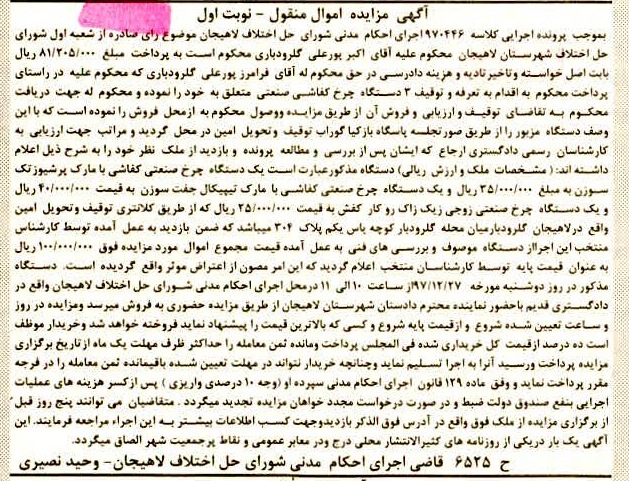 آگهی مزایده اموال منقول - نوبت اول
بموجب پرونده اجرایی کلاسه ۹۷۰۴۴۶ اجرای احکام مدنی شورای حل اختلاف لاهیجان موضوع رای صادره از شعبه اول شورای
حل اختلاف شهرستان لاهیجان محکوم علیه آقای اکبر پورعلی گلرودباری محکوم است به پرداخت مبلغ ۸۱/۲۰۵/۰۰۰ ریال
بابت اصل خواسته وتاخیر تادیه و هزینه دادرسی در حق محکوم له آقای فرامرز پورعلی گلرودباری که محکوم علیه در راستای
پرداخت محکوم به اقدام به تعرفه و توقیف ۳ دستگاه چرخ کفاشی صنعتی متعلق به خود را نموده و محکوم له جهت دریافت
محکوم به تقاضای توقیف و ارزیابی و فروش آن از طریق مزایده ووصول محکوم به ازمحل فروش را نموده است که با این
وصف دستگاه مزبور را از طریق صورتجلسه پاسگاه بازکیا گوراب توقیف و تحویل امین در محل گردید و مراتب جهت ارزیابی به
کارشناسان رسمی دادگستری ارجاع که ایشان پس از بررسی و مطالعه پرونده و بازدید از ملک نظر خود را به شرح ذیل اعلام
داشته اند: ( مشخصات ملک و ارزش ریالی) دستگاه مذکورعبارت است یک دستگاه چرخ صنعتی کفاشی با مارک پرشیوزتک
سوزن به مبلغ ۳۵/۰۰۰/۰۰۰ ریال و یک دستگاه چرخ صنعتی کفاشی با مارک تیپیکال جفت سوزن به قیمت ۴۰/۰۰۰/۰۰۰ ریال
و یک دستگاه چرخ صنعتی زوجی زیک زاک رو کار کفش به قیمت ۲۵/۰۰۰/۰۰۰ ریال که از طریق کلانتری توقیف وتحویل امین
واقع درلاهیجان گلرودبارمیان محله گلرودبار کوچه یاس یکم پلاک ۳۰۴ میباشد که ضمن بازدید به عمل آمده توسط کارشناس
منتخب این اجرااز دستگاه موصوف و بررسی های فنی به عمل آمده قیمت مجموع اموال مورد مزایده فوق ۱۰۰/۰۰۰/۰۰۰ ریال
به عنوان قیمت پایه توسط کارشناسان منتخب اعلام گردید که این امر مصون از اعتراض موثر واقع گردیده است. دستگاه
مذکور در روز دوشنبه مورخه ۹۷/۱۲/۲۷از ساعت ۱۰ الی ۱۱ درمحل اجرای احکام مدنی شورای حل اختلاف لاهیجان واقع در
دادگستری قدیم باحضور نماینده محترم دادستان شهرستان لاهیجان از طریق مزایده حضوری به فروش میرسد ومزایده در روز
و ساعت تعیین شده شروع و ازقیمت پایه شروع و کسی که بالاترین قیمت را پیشنهاد نماید فروخته خواهد شد وخریدار موظف
است ده درصد ازقیمت کل خریداری شده فی المجلس پرداخت ومانده ثمن معامله را حداکثر ظرف مهلت یک ماه از تاریخ برگزاری
مزایده پرداخت ورسید آنرا به اجرا تسلیم نماید وچنانچه خریدار نتواند در مهلت تعیین شده باقیمانده ثمن معامله را در فرجه
مقرر پرداخت نماید و وفق ماده ۱۲۹ قانون اجرای احکام مدنی سپرده او (وجه ۱۰ درصدی واریزی ) پس ازکسر هزینه های عملیات
اجرایی بنفع صندوق دولت ضبط و در صورت درخواست مجدد خواهان مزایده تجدید میگردد . متقاضیان می توانند پنج روز قبل
از برگزاری مزایده از ملک فوق واقع در آدرس فوق الذکر بازدیدوجهت کسب اطلاعات بیشتر به این اجراء مراجعه فرمایند. این
آگهی یک بار دریکی از روزنامه های کثیرالانتشار محلی درج ودر معابر عمومی و نقاط پرجمعیت شهر الصاق میگردد.
ح ۶۵۲۵ قاضی اجرای احکام مدنی شورای حل اختلاف لاهیجان- وحید نصیری